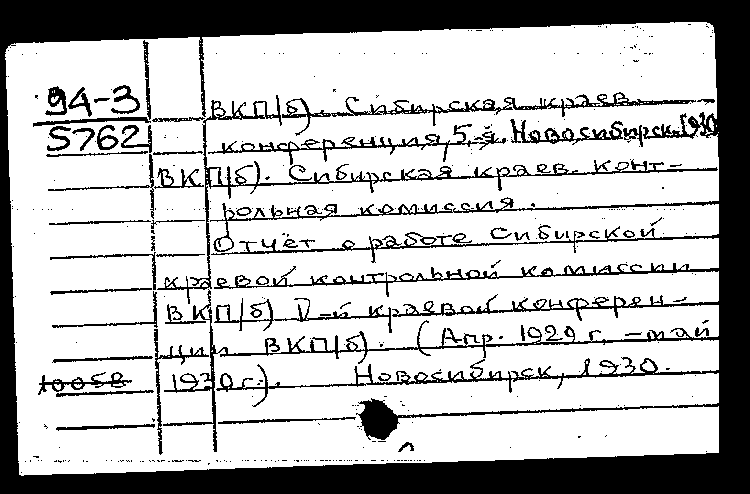 94-3
5762
ВКП/б). Сибирская краев.
конференция, 5-я. Новосибирск. 1930
ВКП/б). Сибирская краев. конт-
рольная комиссия.
Отчёт о работе Сибирской
краевой контрольной комиссии
ВКП/б) V-й краевой конферен-
ции ВКП/б). (Апр. 1929 г. - май
1930 г.). Новосибирск, 1930.
10058